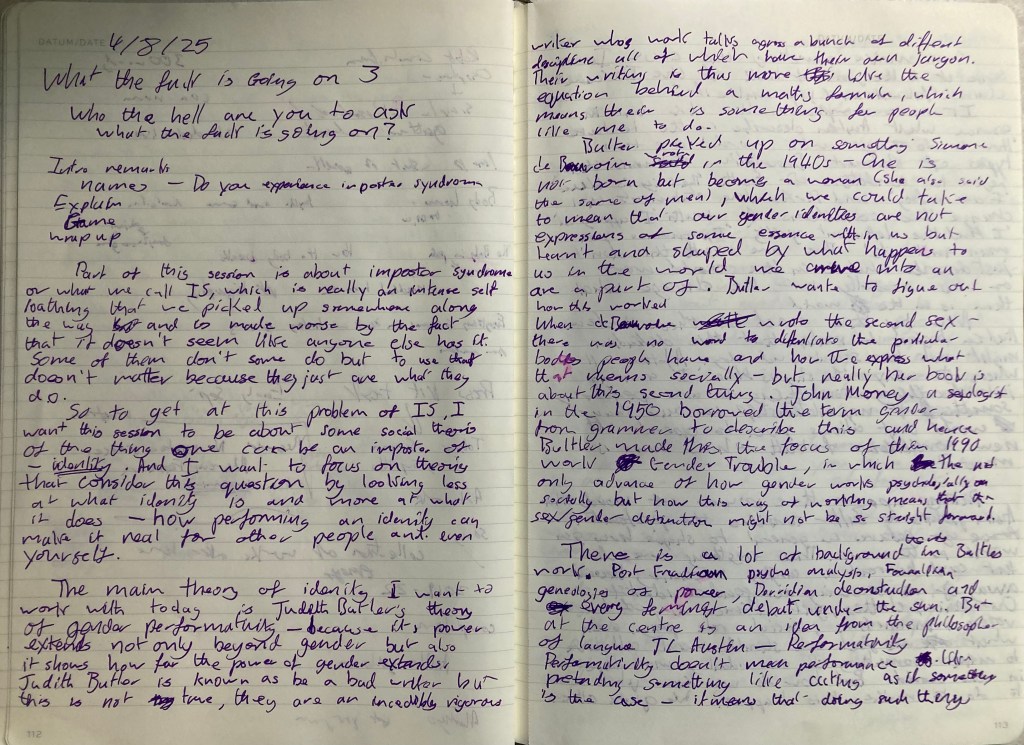 DATUM/DATE 4/8/25
What the fuck is Going on 3
Who the hell are you to ask
what the fuck is going on?
Intro remarks
names – Do you experience impostor syndrome
Explain
Game
wrap up
Part of this session is about impostor syndrome
or what we call IS, which is really an intense self
loathing that we picked up somewhere along
the way and is made worse by the fact
that it doesn't seem like anyone else has it.
Some of them don't some do but to use that
doesn't matter because they just are what they
do.
So to get at this problem of IS, I
want this session to be about some social theoris
of the thing one can be an impostor of
– identity. And I want to focus on theorys
that consider this question by looking less
at what idenity is and more at what
it does – how performing an idenity can
make it real for other people and even
yourself.
The main theory of idenity I want to
work with today is Judith Butler's theory
of gender performativity – because it's power
extends not only beyond gender but also
it shows how far the power of gender extends.
Judith Butler is known as be a bad writer but
this is not true, they are an incredibly rigorous
writer whos work talks across a bunch of diffent
discipline all of which have their own jargon.
Their writing is thus more like the
equation behind a maths formula, which
means there is something for people
like me to do.
Butler picked up on something Simone
de Beauvoire in the 1940s – One is
not born but become a woman (she also said
the same of men), which we could take
to mean that our gender identites are not
expressions of some essence in us but
learnt and shaped by what happens to
us in the world we into an
are a part of. Butler wants to figue out
how this worked
When de Beauvoire wrote the second sex –
there was no word to the particular
bodies people have and how the express what
that means socially – but really her book is
about this second thing. John Money a sexologist
in the 1950 borrowed the term gender
from grammer to describe this and hence
Bultler made this the focus of them 1990
work Gender Trouble, in which The not
only advance of how gender works psychologially or
socially but how this way of working means that the
sex/gender distinction might not be so straight forward.
There is a lot of background in Butlers
work. Post Freudian psycho analysts, Foucauldian
genealogies of power, Derridian deconstruction and
every feminist debut under the sun. But
at the centre is an idea from the philosopher
of langue JL Austen – Performativity
Performativity doesn't mean performance like
pretending something like acting as if something
is the case – it means that doing such theng